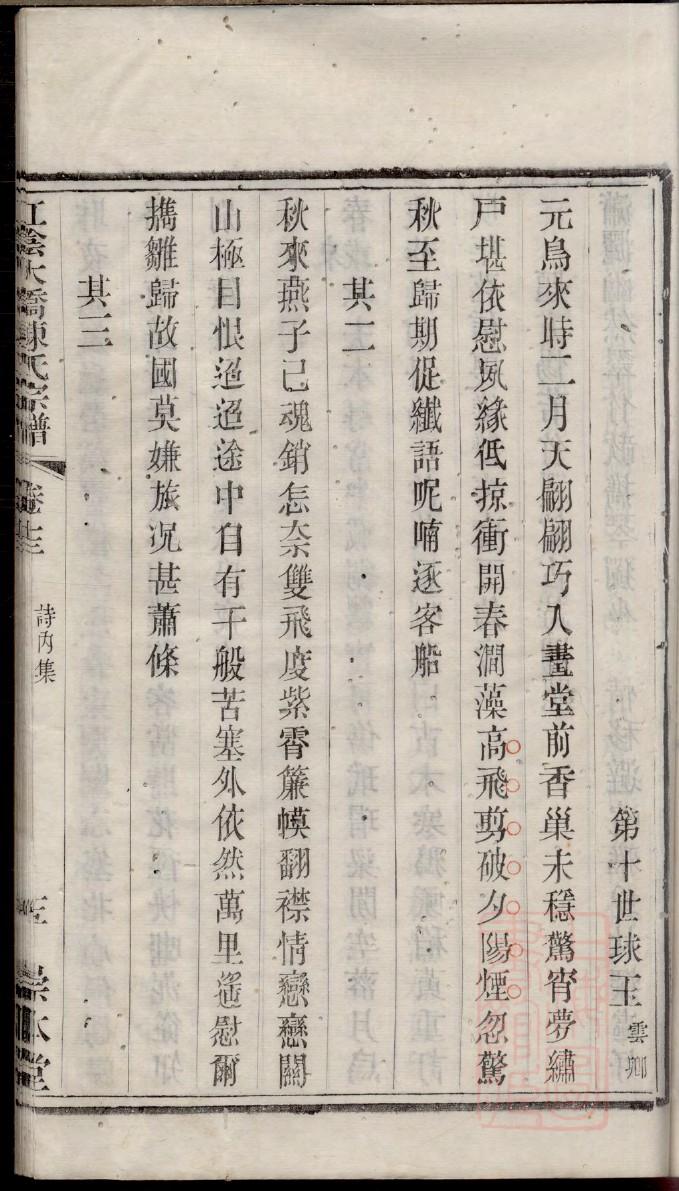 第十世球玉雲卿
元鳥來時二月天翩翩巧入畫堂前香巢未穩驚宵夢繡
戸堪依慰夙緣低掠衝開春澗藻高飛剪破夕陽煙忽驚
秋至歸期促纖語呢喃逐客船
其二
秋來燕子已魂銷怎奈雙飛度紫霄簾幙翻襟情戀戀關
山極目恨迢迢途中自有千般苦塞外依然萬里遙慰爾
擕雛歸故國莫嫌旅况甚蕭條
其三
江陰大橋陳氏宗譜
卷廿三
詩內集
宗本堂